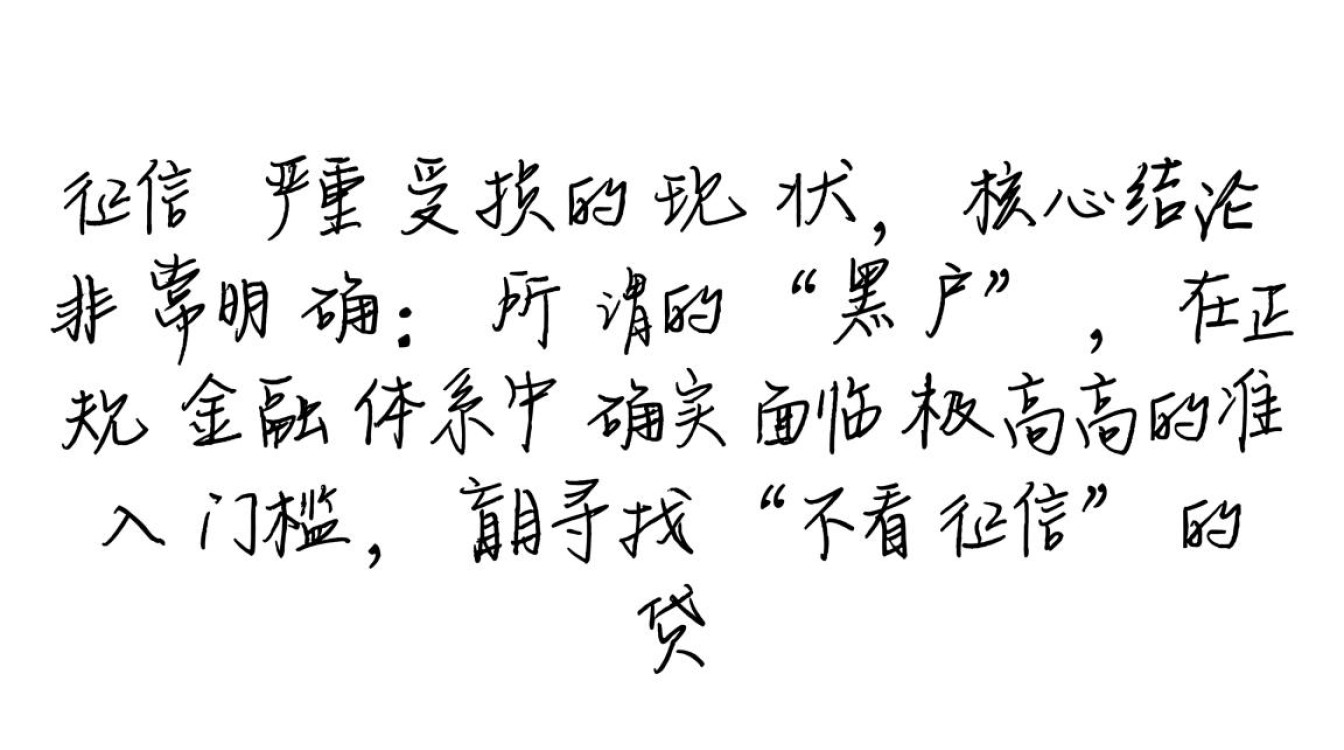 征信严重受损的现状，核心结论
非常明确：所谓的“黑户”，在正
规金融体系中确实面临极高高的准
入门槛，盲目寻找“不看征信”的
贷